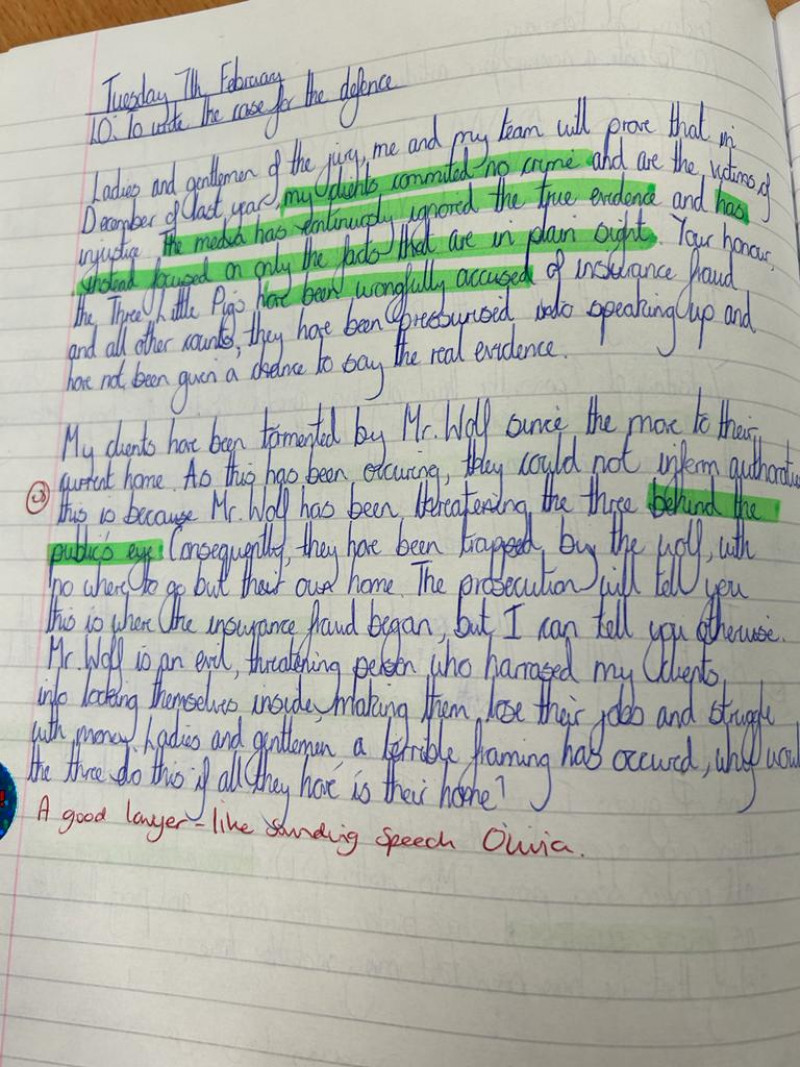 Tuesday 7th February
L.O: To write the case for the defence
Ladies and gentlemen of the jury, me and my team will prove that in
December of last year, my clients commited no cryme and are the victims of
injustice. The media has continuously ignored the true evidence and has
instead focused on only the facts that are in plain sight. Your honour,
the Three Little Pigs have been wrongfully accused of insurance fraud
and all other counts, they have been pressurised into speaking up and
have not been given a chance to say the real evidence.
My clients have been tormented by Mr. Wolf since the move to their
current home. As this has been occuring, they could not inform
this is because Mr. Wolf has been threatening the three behind the
public's eye. Consequently, they have been trapped by the wolf, with
no where to go but their own home. The prosecution will tell you
this is where the insurance fraud began, but I can tell you otherwise.
Mr. Wolf is an evil, threatening person who harrased my clients
into locking themselves inside, making them lose their jobs and struggle
with money. Ladies and gentlemen, a terrible framing has occured, why
the three do this if all they have is their home?
A good lawyer-like sounding speech Olivia.